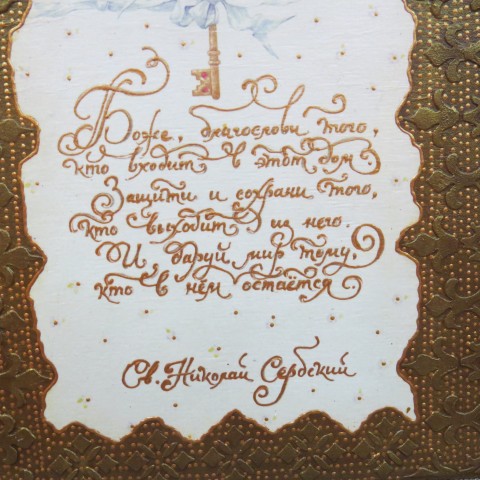 Боже, благослови того,
кто входит в этот дом
Защити и сохрани того,
кто выходит из него.
И даруй мир тому,
кто в нём остаётся
Св. Николай Сербский